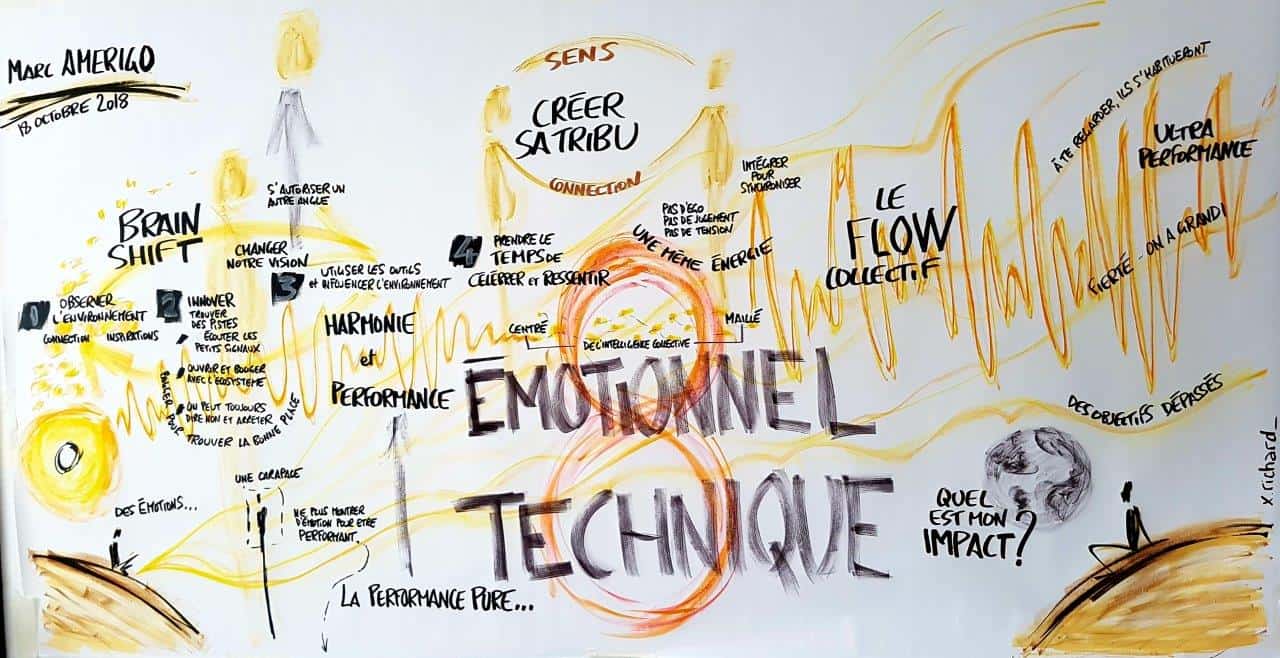 MARC AMERIGO
18 OCTOBRE 2018
BRAIN
SHIFT
S'AUTORISER UN
AUTRE ANGLE
CHANGER
NOTRE VISION
1 OBSERVER
L'ENVIRONNEMENT
CONNECTION INSPIRATIONS
2 INNOVER
TROUVER
DES PISTES
ÉCOUTER LES
PETITS SIGNAUX
OUVRIR ET BOUGER
AVEC L'ÉCOSYSTÈME
ON PEUT TOUJOURS
DIRE NON ET ARRÊTER
BOUGER POUR TROUVER LA BONNE PLACE
3 UTILISER LES OUTILS
et INFLUENCER L'ENVIRONNEMENT
HARMONIE
et
PERFORMANCE
SENS
CRÉER
SA TRIBU
CONNECTION
4 PRENDRE LE
TEMPS DE
CÉLÉBRER et RESSENTIR
INTÉGRER
POUR
SYNCHRONISER
PAS D'ÉGO
PAS DE JUGEMENT
PAS DE TENSION
UNE MÊME ÉNERGIE
CENTRÉ
MAILLÉ
DE L'INTELLIGENCE COLLECTIVE
ÉMOTIONNEL
TECHNIQUE
LE
FLOW
COLLECTIF
À TE REGARDER, ILS S'HABITUERONT
ULTRA
PERFORMANCE
FIERTÉ - ON A GRANDI
DES OBJECTIFS DÉPASSÉS
DES ÉMOTIONS...
UNE CARAPACE
NE PLUS MONTRER
D'ÉMOTION POUR ÊTRE
PERFORMANT.
LA PERFORMANCE PURE...
QUEL
EST MON
IMPACT ?
x.richard_